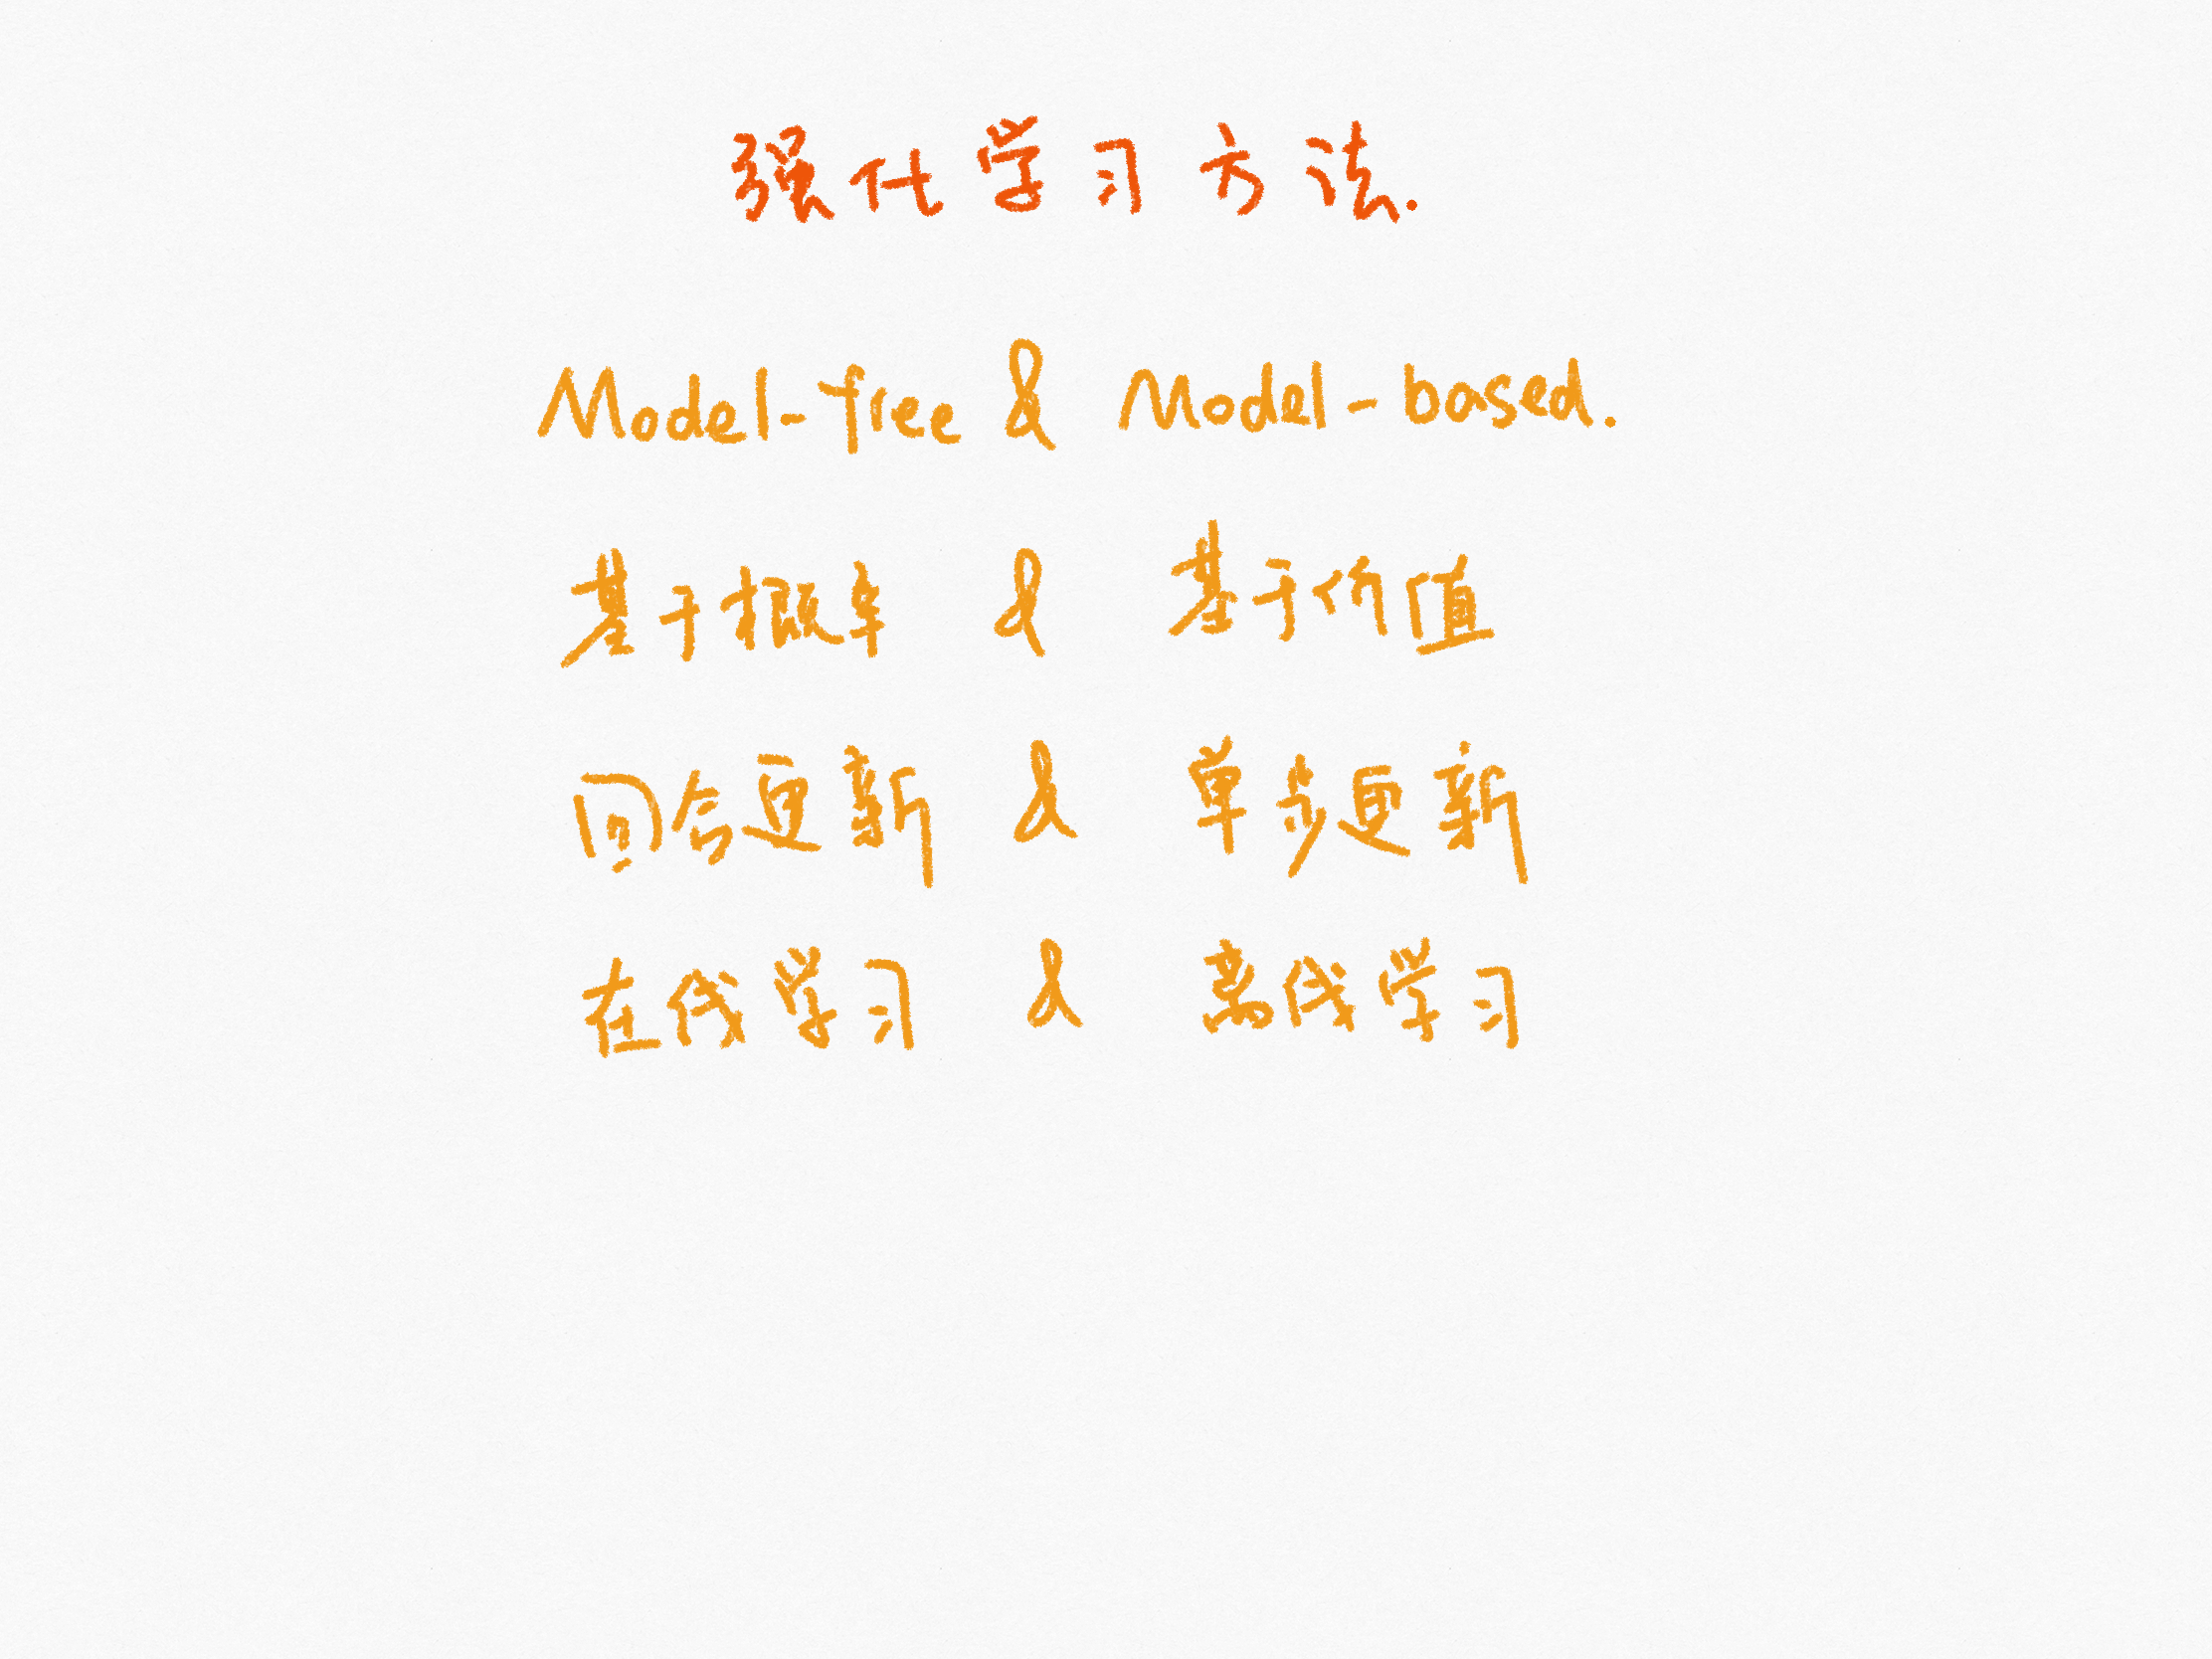 强化学习方法.
Model-free & Model-based.
基于概率 & 基于价值
回合更新 & 单步更新
在线学习 & 离线学习